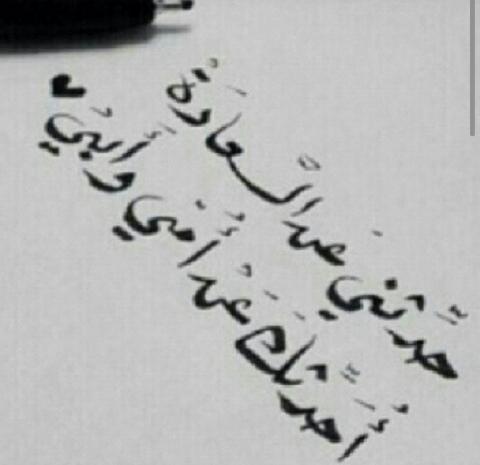 حدّثني عن السَّعادَة
أُحَدّثُكَ عَنْ أُمّي وَأَبي